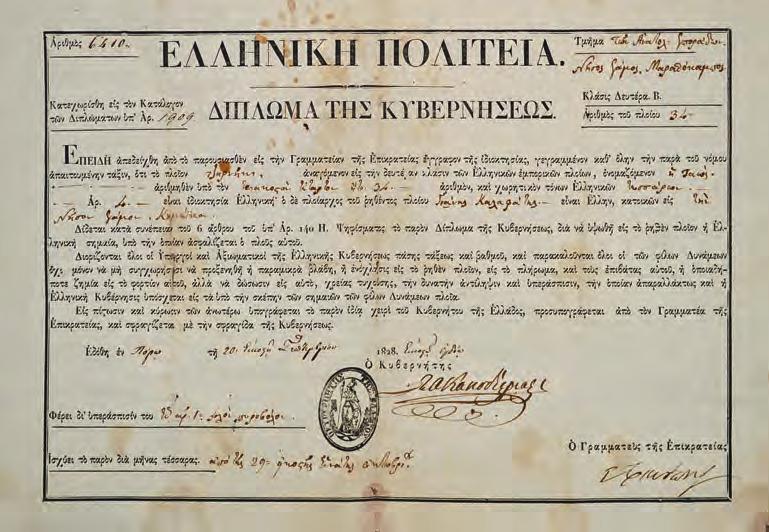 Ἀριθμὸς 6410.
ΕΛΛΗΝΙΚΗ ΠΟΛΙΤΕΙΑ.
Τμῆμα τῶν Ἀνατολ. Σποράδων
Νῆσος Σάμος, Μαραθόκαμπος
Κατεχωρίσθη εἰς τὸν Κατάλογον
τῶν Διπλωμάτων ὑπ' Ἀρ. 1909
ΔΙΠΛΩΜΑ ΤΗΣ ΚΥΒΕΡΝΗΣΕΩΣ.
Κλάσις Δευτέρα Β.
Ἀριθμὸς τοῦ πλοίου 34
ΕΠΕΙΔΗ ἀπεδείχθη ἀπὸ τὸ παρουσιασθὲν εἰς τὴν Γραμματείαν τῆς Ἐπικρατείας ἔγγραφον τῆς ἰδιοκτησίας, γεγραμμένον καθ' ὅλην τὴν παρὰ τοῦ νόμου
ἀπαιτουμένην τάξιν, ὅτι τὸ πλοῖον ἀναγόμενον εἰς τὴν δευτέραν κλάσιν τῶν Ἑλληνικῶν ἐμπορικῶν πλοίων, ὀνομαζόμενον
ἀριθμηθὲν ὑπὸ τὸν 34 ἀριθμὸν, καὶ χωρητικὸν τόνων Ἑλληνικῶν
Ἀρ. 4 εἶναι ἰδιοκτησία Ἑλληνική· ὁ δὲ πλοίαρχος τοῦ ῥηθέντος πλοίου εἶναι Ἕλλην, κατοικῶν εἰς τὴν
Νῆσον Σάμον
Δίδεται κατὰ συνέπειαν τοῦ 6 ἄρθρου τοῦ ὑπ' Ἀρ. 140 Η. Ψηφίσματος, τὸ παρὸν Δίπλωμα τῆς Κυβερνήσεως, διὰ νὰ ὑψωθῇ εἰς τὸ ῥηθὲν πλοῖον ἡ Ἑλ-
ληνικὴ σημαία, ὑπὸ τὴν ὁποίαν ἀσφαλίζεται ὁ πλοῦς αὐτοῦ.
Διορίζονται ὅλοι οἱ Ὑπουργοὶ καὶ Ἀξιωματικοὶ τῆς Ἑλληνικῆς Κυβερνήσεως πάσης τάξεως καὶ βαθμοῦ, καὶ παρακαλοῦνται ὅλοι οἱ τῶν φίλων Δυνάμεων
ὄχι μόνον νὰ μὴ συγχωρήσωσι νὰ προξενηθῇ ἡ παραμικρὰ βλάβη, ἢ ἐνόχλησις εἰς τὸ ῥηθὲν πλοῖον, εἰς τὸ πλήρωμα, καὶ τοὺς ἐπιβάτας αὐτοῦ, ἢ ὁποιαδή-
ποτε ζημία εἰς τὸ φορτίον αὐτοῦ, ἀλλὰ νὰ δώσωσιν εἰς αὐτὸ, χρείας τυχούσης, τὴν δυνατὴν ἀντίληψιν καὶ ὑπεράσπισιν, τὴν ὁποίαν ἀπαραλλάκτως καὶ ἡ
Ἑλληνικὴ Κυβέρνησις ὑπόσχεται εἰς τὰ ὑπὸ τὴν σκέπην τῶν σημαιῶν τῶν φίλων Δυνάμεων πλοῖα.
Εἰς πίστωσιν καὶ κύρωσιν τῶν ἀνωτέρω ὑπογράφεται τὸ παρὸν ἰδίᾳ χειρὶ τοῦ Κυβερνήτου τῆς Ἑλλάδος, προσυπογράφεται ἀπὸ τὸν Γραμματέα τῆς
Ἐπικρατείας, καὶ σφραγίζεται μὲ τὴν σφραγῖδα τῆς Κυβερνήσεως.
Ἐδόθη ἐν Πόρῳ τῇ 20 Σεπτεμβρίου 1828
Ὁ Κυβερνήτης
Ι.Α.Καποδίστριας
Φέρει δι' ὑπεράσπισίν του
Ὁ Γραμματεὺς τῆς Ἐπικρατείας
Ἰσχύει τὸ παρὸν διὰ μῆνας τέσσαρας